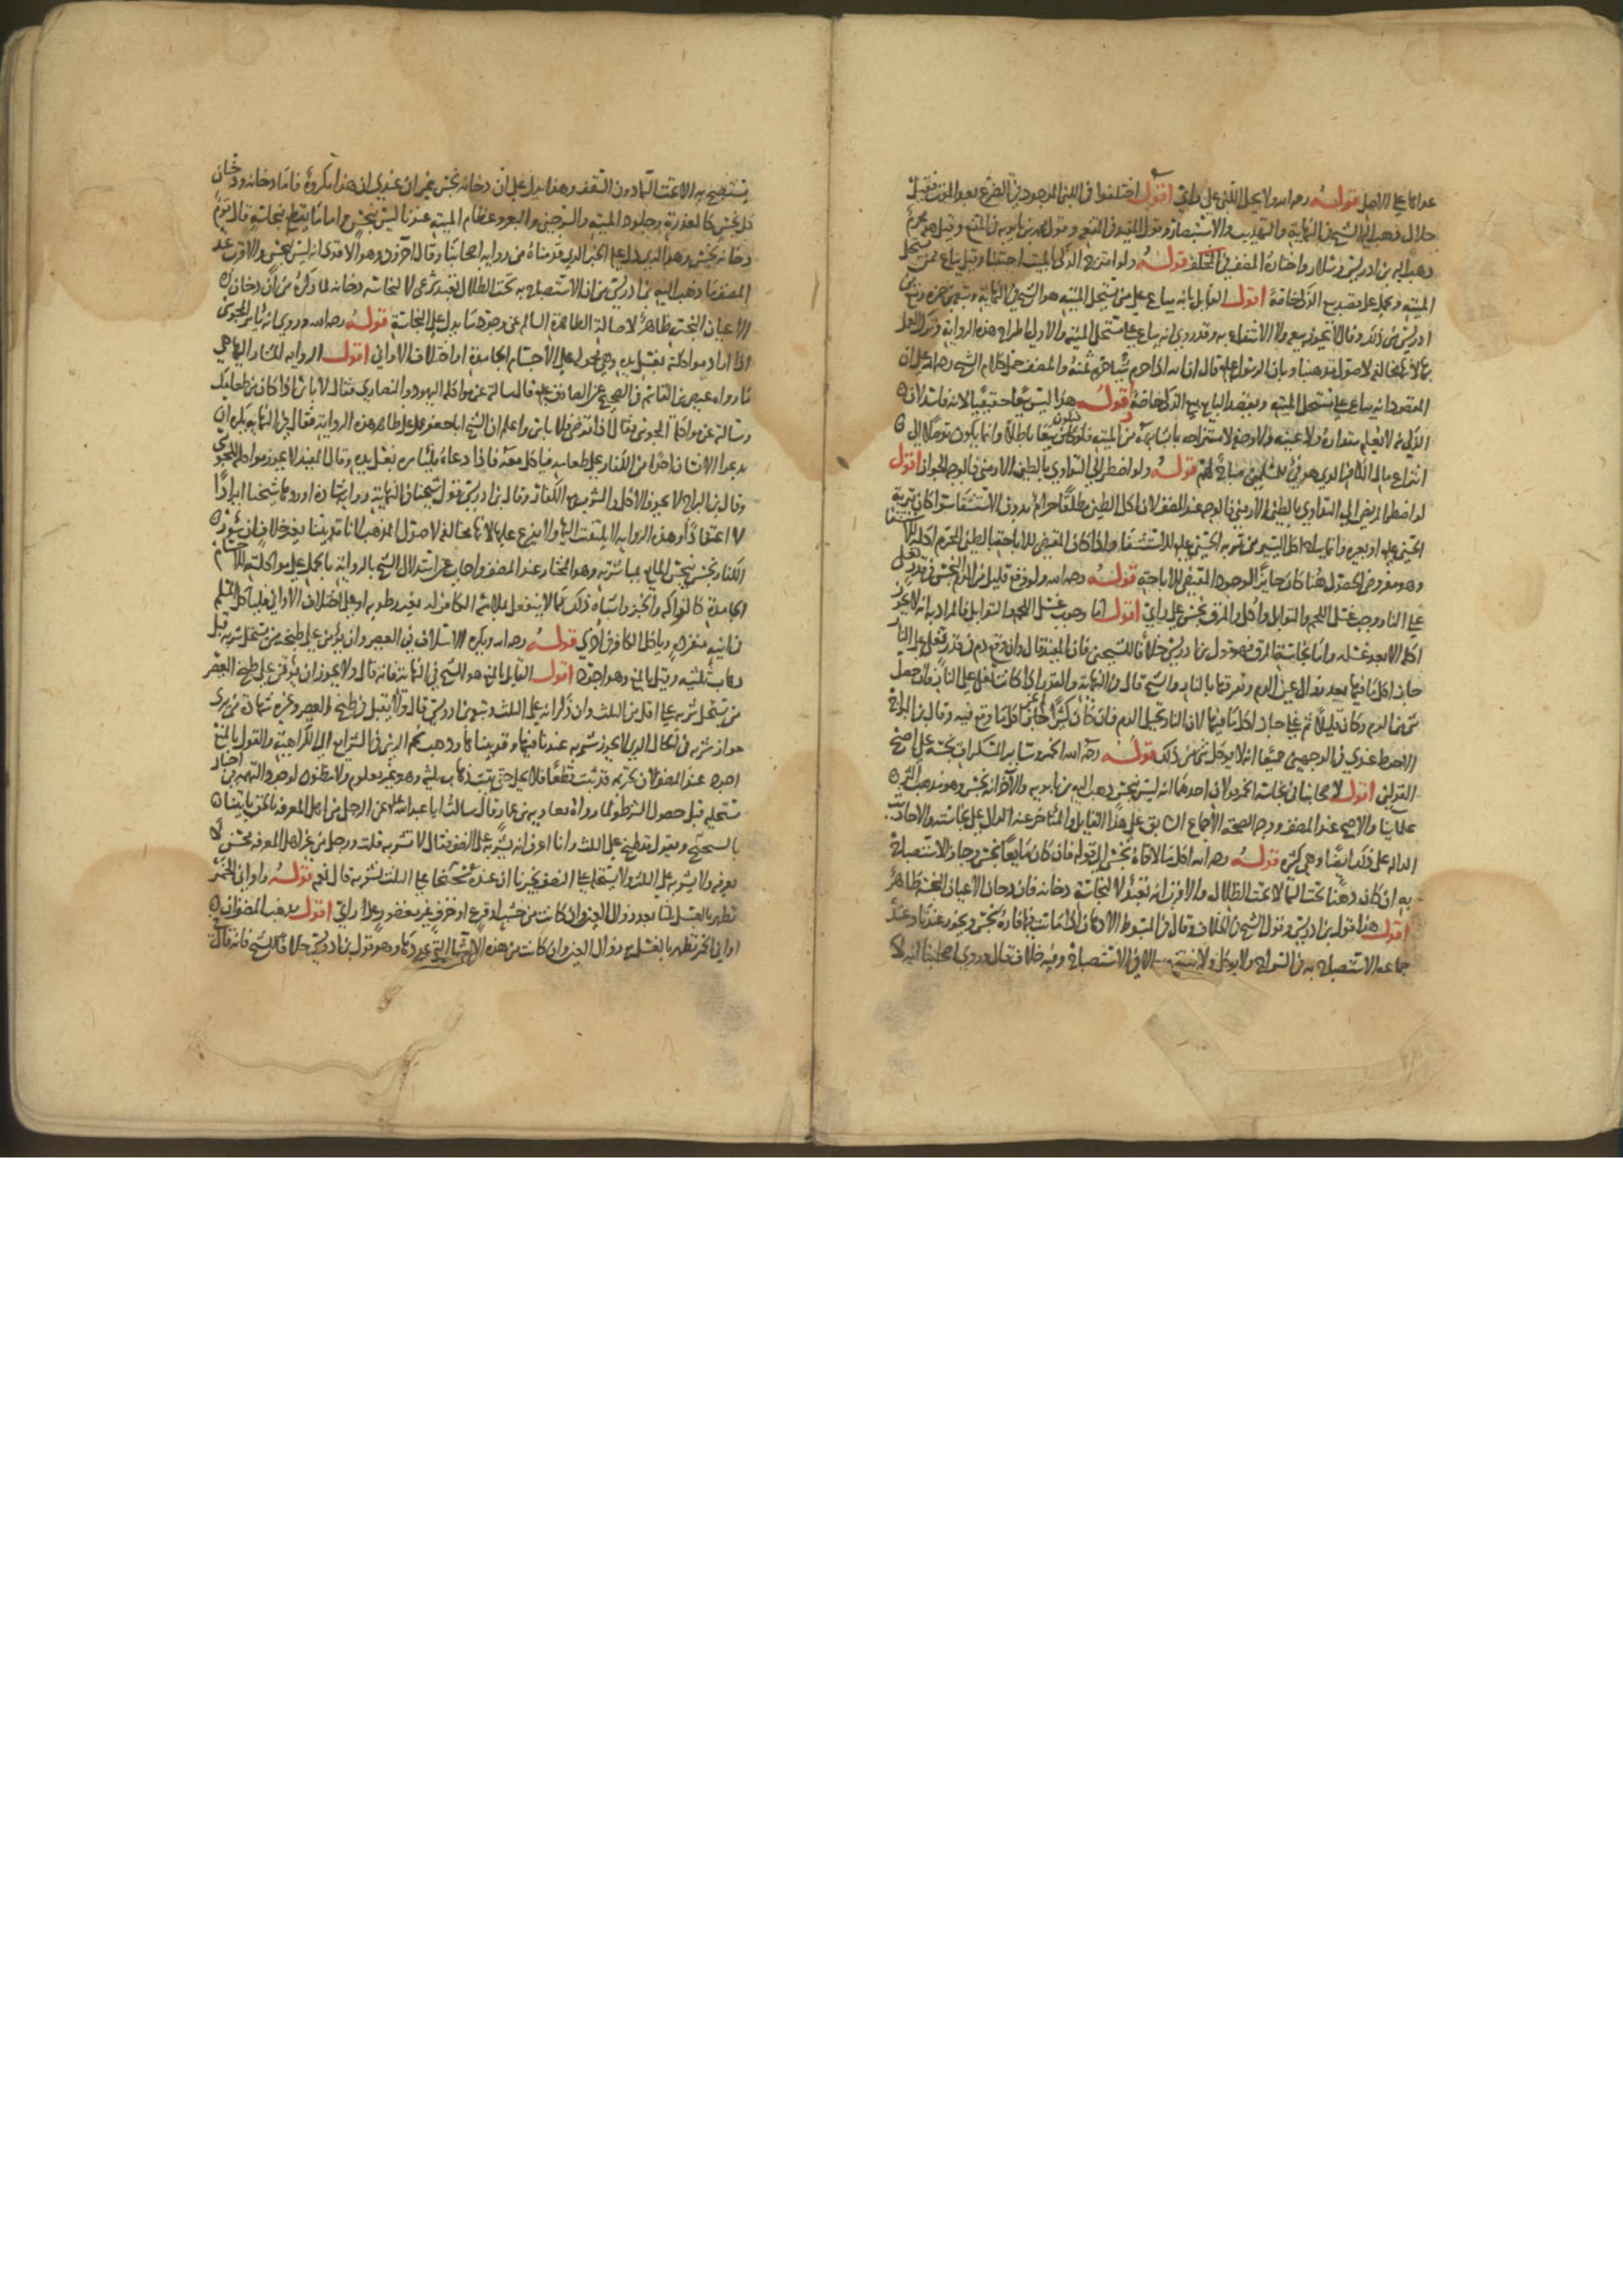 عملا على الاصل قوله رحمه الله ولا يحل اللبن على راي اقول اختلفوا في اللبن الموجود في الضرع بعد الموت فقيل
حلال ذهب اليه الشيخ في النهاية والتهذيب والاستبصار وهو قول المفيد في المقنعه وقول محمد بن بابويه في المقنع وقيل هو محرم
ذهب اليه بن ادريس وسلار واختاره المصنف في المختلف قوله ولو امتزج الذكي بالميت اجتنبا وقيل يباع ممن يستحل
الميته ويحمل على قصد بيع الذكي خاصة اقول القايل بانه يباع على من يستحل الميته هو الشيخ في النهاية
ادريس من ذلك وقال لا يجوز بيعه ولا الانتفاع به وقد روي انه يباع على مستحل الميته والاولى اطراح هذه الرواية وترك العمل
بها لانها مخالفه لاصول مذهبنا ولان الرسول عليه قال ان الله اذا حرم شيئا حرم ثمنه والمصنف حمل كلام الشيخ رحمه الله على ان
المقصود انه يباع على مستحل الميته ويقصد البايع بيع الذكي خاصة قوله هذا ليس بيعا حقيقيا لانه فاسد لان
الذكي لا يعلم مقداره ولا عينه ولا وصفه لامتزاجه من الميته فلو كان بيعا باطلا وانما يكون توصلا الى
انتزاع مال الكافر الذي هو في المسلمين مباح لهم قوله ولو اضطر الى التداوي بالطين الارمني فالوجه الجواز اقول
لو اضطر المريض الى التداوي بالطين الارمني فالوجه عند المصنف لان اكل الطين مطلقا حرام بدون الاستشفا سوا كان تربة
الحسين عليه او غيره وانما يباح اكل اليسير من تربة الحسين عليه للاستشفا واذا كان المقتضي للاباحه الطين المحرم اكله الاستشفا
وهو مفروض الحصول هنا كان جايزا لوجود المقتضي للاباحة قوله رحمه الله ولو وقع قليل من الدم النجس في قدر تغلي
على النار وجب غسل اللحم والتوابل واكل والمرق نجس على راي اقول اما وجوب غسل اللحم والتوابل فالمراد به انه لا يجوز
اكله الا بعد غسله واما نجاسة المرق فهو قول بن ادريس خلافا للشيخين فان المفيد قال وان وقع دم في قدر يغلي على النار
جاز اكل ما فيها بعد زوال عين الدم وتفرقها بالنار والشيخ قال في النهاية والقدر اذا كانت تغلي على النار فان حصل
شي من الدم وكان قليلا ثم غلي جاز اكل ما فيها لان النار تحيل الدم فان كان كثيرا لم يجز اكل ما وقع فيه وقال بن البراج
الاحوط عندي في الوجهين جميعا انه لا يوكل شي من ذلك قوله رحمه الله الخمر وساير المسكرات نجسة على اصح
القولين اقول لاصحابنا في نجاسة الخمر قولان احدهما انه ليس بنجس ذهب اليه بن بابويه والاخر انه نجس وهو مذهب اكثر
علماينا والاصح عند المصنف ووجه الصحة الاجماع السابق على هذا القايل والمتاخر عنه الدال على نجاسته والاحاديث
الداله على ذلك ايضا وهي كثيره قوله رحمه الله اكل ما لاقاه نجس الى قوله فان كان مايعا نجس وجاز الاستصباح
به ان كان دهنا تحت السما لا تحت الظلال والاقرب انه تعبد لا لنجاسة دخانه فان دخان الاعيان النجسة طاهر
اقول هذا قول بن ادريس وقول الشيخ في الخلاف وقال في المبسوط الادهان اذا ماتت فيها فارة نجس ويجوز عندنا وعند
جماعه الاستصباح به في السراج ولا يوكل ولا ينتفع به الا في الاستصباح وفيه خلاف وقال وروي اصحابنا انه لا
يستصبح به الا تحت السما دون السقف وهذا يدل على ان دخانه نجس غير ان عندي ان هذا مكروه فاما دخانه ودخان
كل نجس كالعذرة وجلود الميته والسرجين والبعر وعظام الميته عندنا ليس بنجس واما ما يقطع بنجاسته قال قوم
دخانه نجس وهو الذي دل عليه الخبر الذي قدمناه من رواية اصحابنا وقال اخرون وهو الاقوى انه ليس بنجس والاقرب عند
المصنف ما ذهب اليه بن ادريس من ان الاستصباح به تحت الظلال تعبد شرعي لا لنجاسة دخانه لما ذكره من ان دخان
الاعيان النجسة طاهر لاصالة الطهارة السالم عن وجود ما يدل على النجاسة قوله رحمه الله وروي انه يامر المجوسي
اذا اراد مواكلته بغسل يده وهي محموله على الاجسام الجامدة او اختلاف الاواني اقول الرواية المشار اليها هي
ما رواه عيص بن القاسم في الصحيح عن الصادق عليه قال سالته عن مواكلة اليهود والنصارى فقال لا باس اذا كان من طعامك
وسالته عن مواكلة المجوسي فقال اذا توضى فلا باس واعلم ان الشيخ ابا جعفر عمل على ظاهر هذه الرواية فقال في النهاية يكره ان
يدعو الانسان احدا من الكفار على طعامه فياكل معه فاذا دعاه فليامره بغسل يده وقال المفيد لا يجوز مواكلة المجوس
وقال بن البراج لا يجوز الاكل والشرب مع الكفار وقال بن ادريس قول شيخنا في النهاية رواية شاذة اوردها شيخنا ايرادا
لا اعتقادا وهذه الرواية لا يلتفت اليها ولا يعرج عليها لانها مخالفه لاصول المذهب لانا قد بينا بغير خلاف ان سؤر
الكفار نجس ينجس المايع بمباشرته وهو المختار عند المصنف واجاب عن استدلال الشيخ بالرواية بالحمل على مواكلته للاجسام
الجامدة كالفواكه والخبز واشباه ذلك مما لا ينفعل بملاقاة الكافر له بغير رطوبه او على اختلاف الاواني فياكل المسلم
في انيه منفرده وياكل الكافر في اخرى قوله رحمه الله ويكره الاسلاف في العصير وان يؤمن على طبخه من يستحل شربه قبل
ذهاب ثلثيه وقيل بالمنع وهو اجود اقول القايل بالمنع هو الشيخ في النهاية فانه قال ولا يجوز ان يؤتمن على طبخ العصير
من يستحل شربه على اقل من الثلث وان ذكر انه على الثلث وتبعه بن ادريس قال ولا يقبل في طبخ العصير وغيره شهادة من يرى
جواز شربه في الحال الذي لا يجوز شربه عندنا فيها وقد بيناها وذهب نجم الدين في الشرايع الى الكراهية والقول بالمنع
اجود عند المصنف لان تحريمه قد ثبت قطعا فلا يحل حتى يثبت ذهاب ثلثيه وهو غير معلوم ولا مظنون لوجود التهمه من اخبار
مستحليه قبل حصول الشرط ولما رواه معاويه بن عمار قال سالت ابا عبد الله عليه عن الرجل من اهل المعرفه بالحق ياتينا
بالبختج ويقول قد طبخ على الثلث وانا اعرف انه يشربه على النصف فقال لا تشربه قلت ورجل من غير اهل المعرفه ممن لا
نعرفه ولا يشربه على الثلث ولا يستحله على النصف يخبرنا ان عنده بختجا على الثلث نشربه قال نعم قوله واواني الخمر
تطهر بالغسل ثلثا بعد زوال العين وان كانت من خشب او قرع او خزف غير مغضور على راي اقول يذهب المصنف ان
اواني الخمر تطهر بالغسل مع زوال العين وان كانت من هذه الاشيا التي عددها وهو قول بن ادريس خلافا للشيخ فانه قال